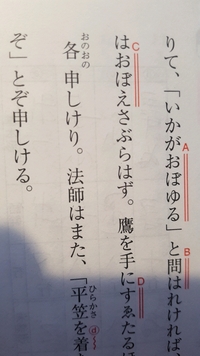 りて、「いかがおぼゆる」と問はれければ
A
B
はおぼえさぶらはず。鷹を手にすゑたる
C
D
各申しけり。法師はまた、「平笠を着
おのおの
ひらかさ
ⓐ
ぞ」とぞ申しける。